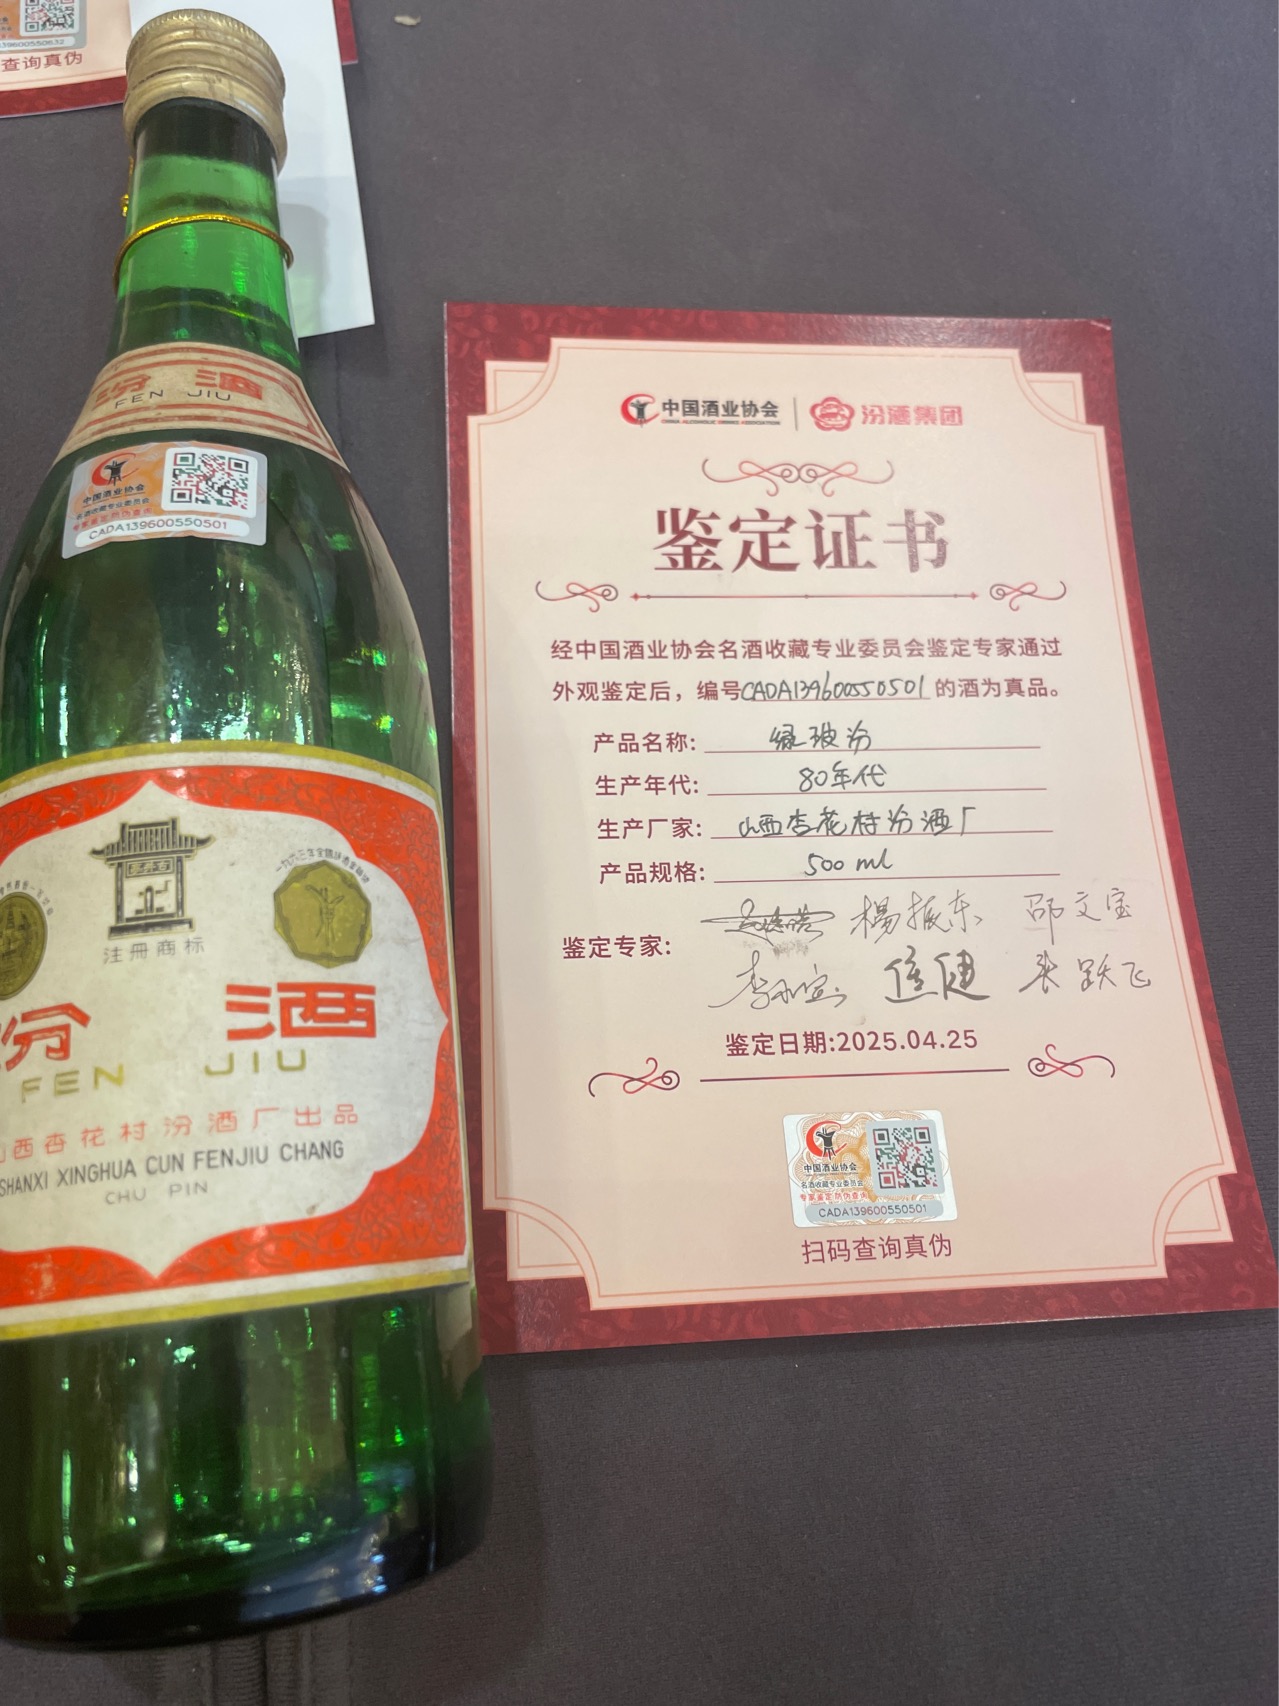 39600550632
查询真伪
汾 酒
FEN JIU
中国酒业协会
名酒收藏专业委员会
专家鉴定 防伪查询
CADA139600550501
注册商标
汾 酒
FEN JIU
山西杏花村汾酒厂出品
SHANXI XINGHUA CUN FENJIU CHANG
CHU PIN
中国酒业协会 汾酒集团
CHINA ALCOHOLIC DRINKS ASSOCIATION
鉴定证书
经中国酒业协会名酒收藏专业委员会鉴定专家通过
外观鉴定后，编号CADA139600550501的酒为真品。
产品名称: 绿玻汾
生产年代: 80年代
生产厂家: 山西杏花村汾酒厂
产品规格: 500 ml
鉴定专家: 杨振东 邵文宝
焦健 张跃飞
鉴定日期:2025.04.25
中国酒业协会
名酒收藏专业委员会
专家鉴定 防伪查询
CADA139600550501
扫码查询真伪